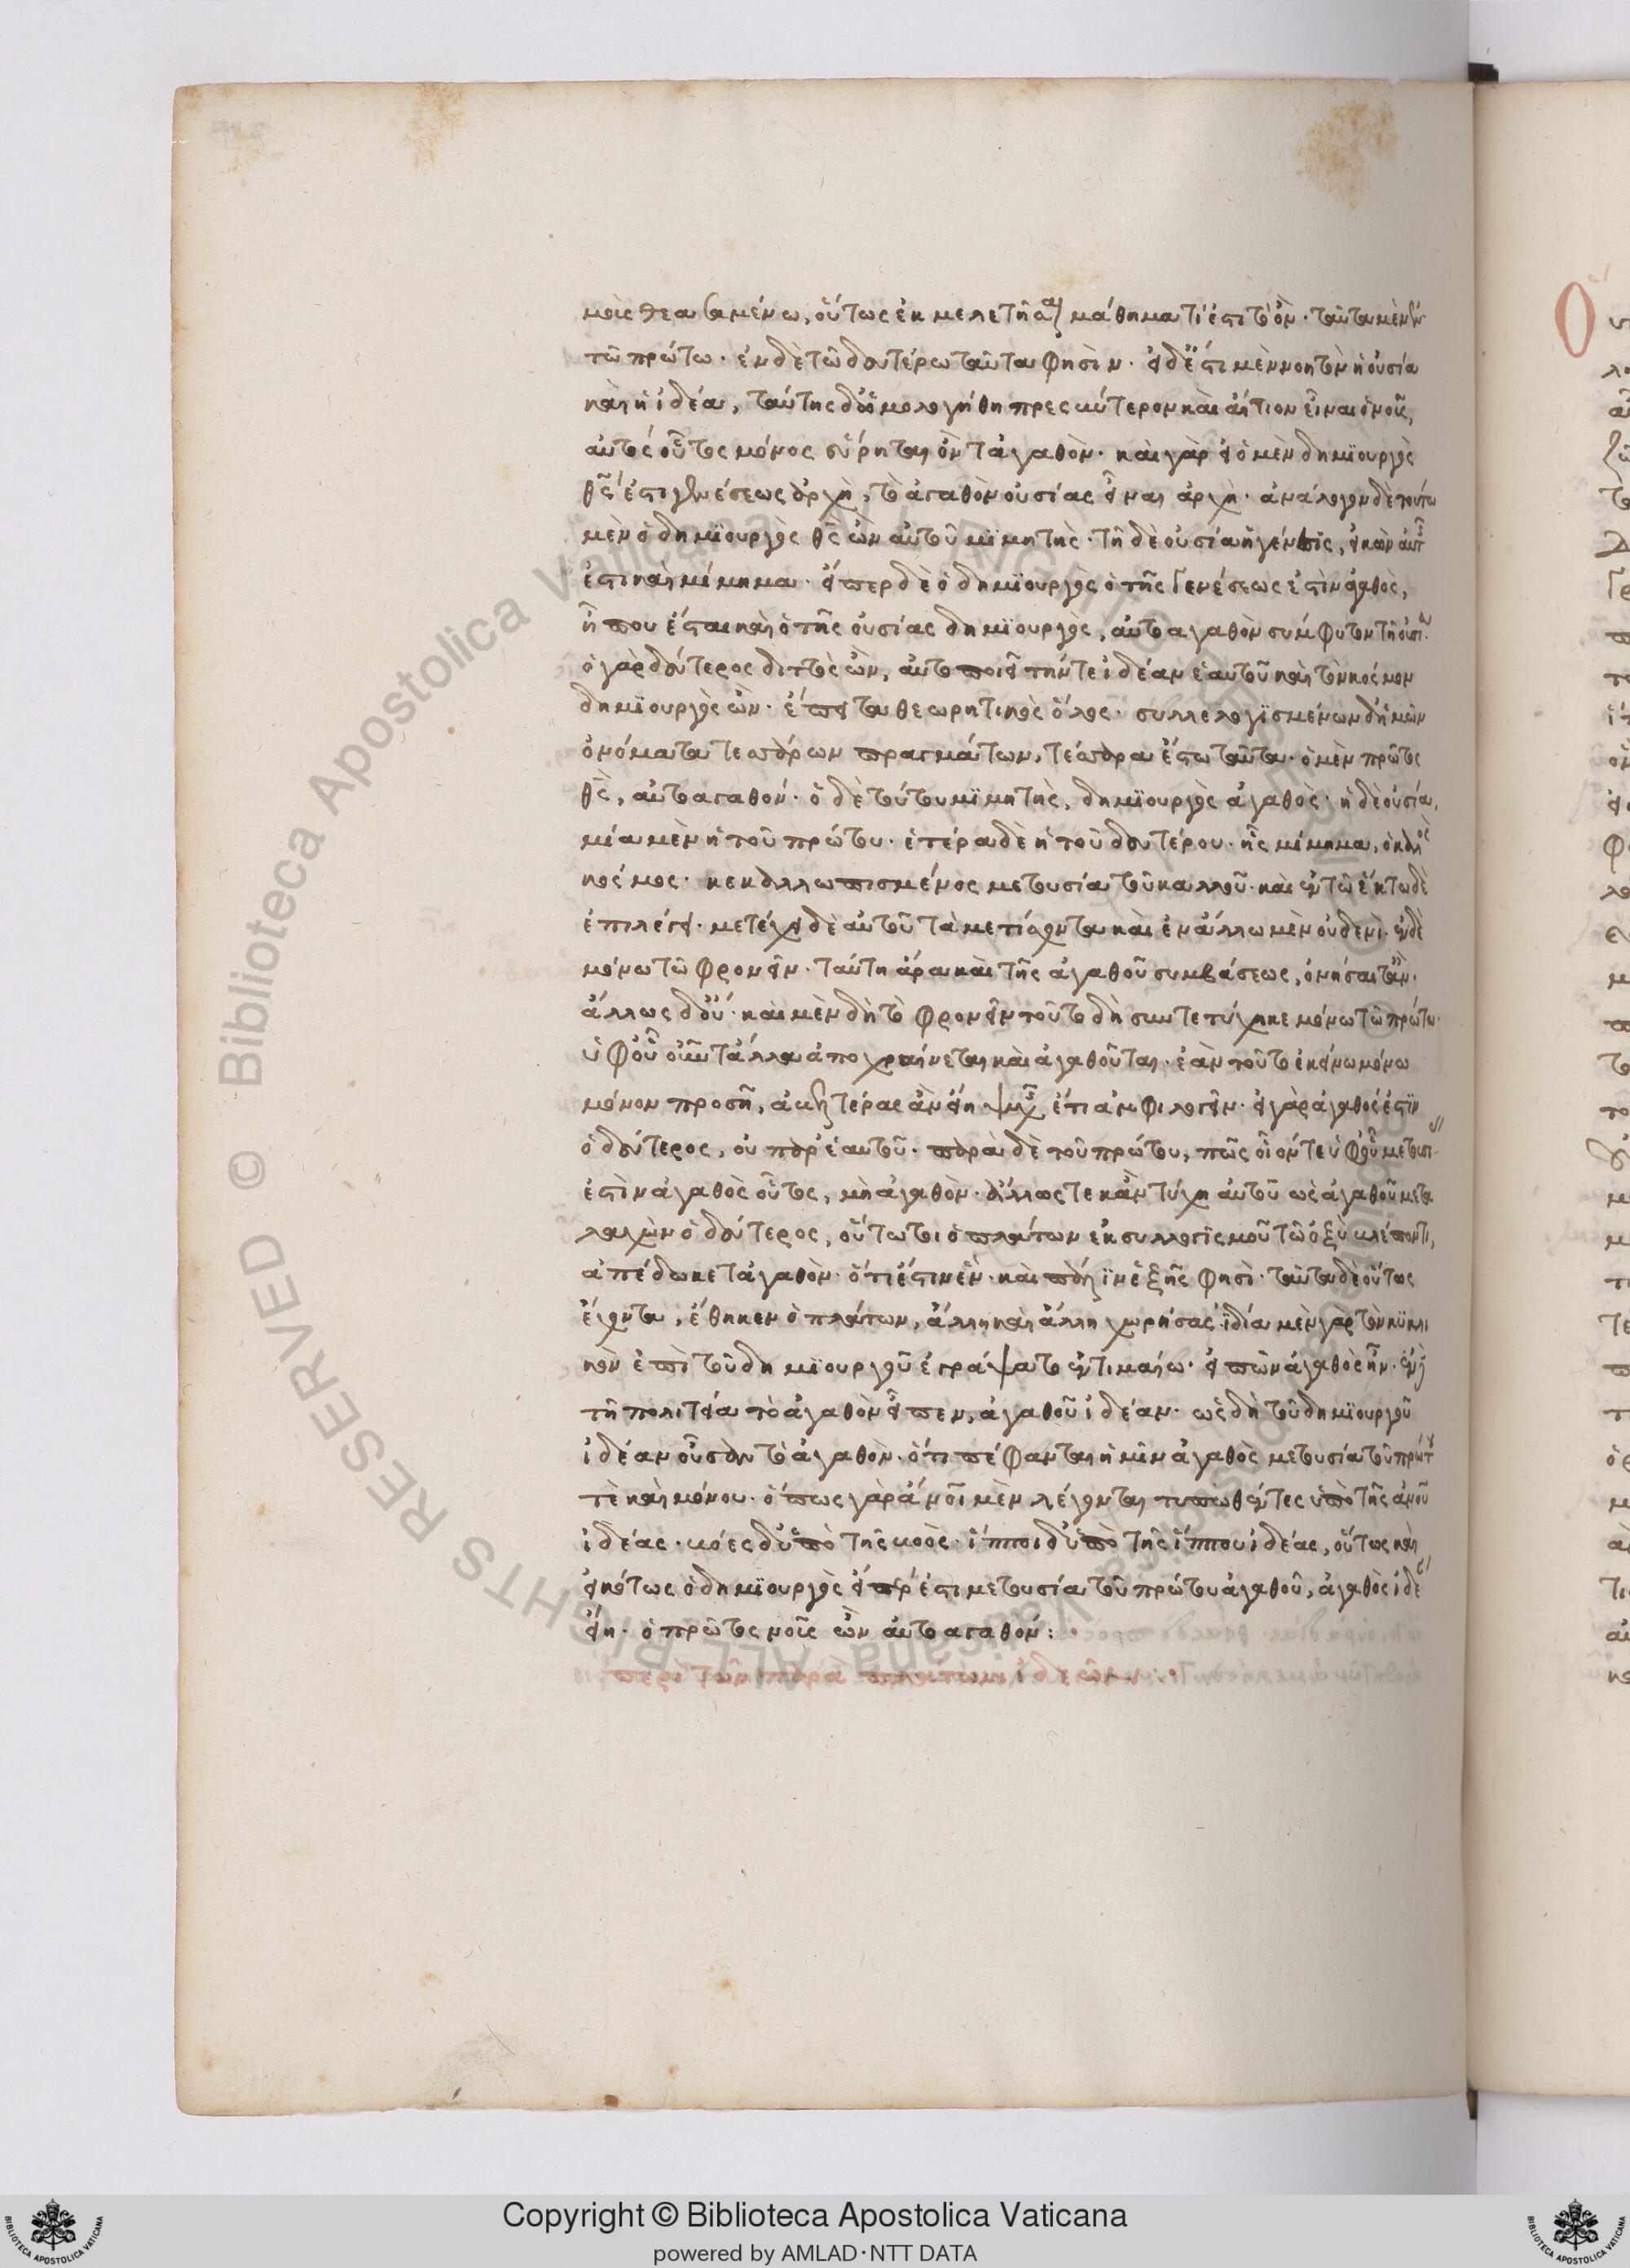 μοῖς θεασαμένω, οὕτως ἐκμελετῆσαι μάθημα τί ἐστι τὸ ὄν· ταῦτα μὲν ἐν
τῶ πρώτω· ἐν δὲ τῶ δευτέρω ταῦτα φησίν· εἰ δ' ἔστι μὲν νοητὸν ἡ οὐσία
καὶ ἡ ἰδέα, ταύτης δ' ὡμολογήθη πρεσβύτερον καὶ αἴτιον εἶναι ὁ νοῦς,
αὐτὸς οὗτος μόνος εὕρηται ὂν τἀγαθὸν· καὶ γὰρ εἰ ὁ μὲν δημϊουργὸς
θς ἐστι γενέσεως ἀρχὴ, τὸ ἀγαθὸν οὐσίας εἶναι ἀρχὴ· ἀνάλογον δὲ τούτω
μὲν ὁ δημϊουργὸς θς ὢν αὐτοῦ μϊμητὴς· τῆ δὲ οὐσία ἡ γένεσις, εἰκὼν αὐτῆς
ἐστι καὶ μίμημα· εἴπερ δὲ ὁ δημϊουργὸς ὁ τῆς γενέσεως ἐστὶν ἀγαθὸς,
ἦ που ἔσται καὶ ὁ τῆς οὐσίας δημϊουργὸς, αὐτοαγαθὸν σύμφυτον τῆ οὐσία·
ὁ γὰρ δεύτερος διττὸς ὢν, αὐτοποιεῖ τήν τε ἰδέαν ἑαυτοῦ καὶ τὸν κόσμον
δημϊουργὸς ὢν· ἔπειτα θεωρητικὸς ὅλος· συλλελογϊσμένων δ' ἡμῶν
ὀνόματα τεσσάρων πραγμάτων, τέσσαρα ἔστω ταῦτα· ὁ μὲν πρῶτος
θς, αὐτοαγαθόν· ὁ δὲ τούτου μϊμητὴς, δημϊουργὸς ἀγαθὸς· ἡ δὲ οὐσία,
μία μὲν ἡ τοῦ πρώτου· ἑτέρα δὲ ἡ τοῦ δευτέρου· ἧς μίμημα, ὁ καλὸς
κόσμος· κεκαλλωπισμένος μετουσία τοῦ καλλοῦ· καὶ ἐν τῶ ἕκτω δὲ
ἐπιλέγει· μετέχει δὲ αὐτοῦ τὰ μετίσχοντα καὶ ἐν ἄλλω μὲν οὐδενὶ· ἐν δὲ
μόνω τῶ φρονεῖν· ταύτη ἄρα καὶ τῆς ἀγαθοῦ συμβάσεως, ὀνήσαιτ' ἂν·
ἄλλως δ' οὔ· καὶ μὲν δὴ τὸ φρονεῖν τοῦτο δὴ συντετύχηκε μόνω τῶ πρώτω·
ὑφ' οὗ οὖν τἄλλα ἀποχραίνεται καὶ ἀγαθοῦται· ἐὰν τοῦτο ἐκείνω μόνω
μόνον προσῆ, ἀβελτέρας ἂν εἴη ψυχῆς ἔτι ἀμφιλογεῖν· εἰ γὰρ ἀγαθός ἐστϊν
ὁ δεύτερος, οὐ παρ' ἑαυτοῦ· παρὰ δὲ τοῦ πρώτου, πῶς οἷόν τε ὑφ' οὗ μετουσί-
ἐστὶν ἀγαθὸς οὗτος, μὴ ἀγαθὸν· ἄλλως τε κἂν τύχη αὐτοῦ ὡς ἀγαθοῦ μετα
λαχὼν ὁ δεύτερος, οὕτω τοι ὁ πλάτων ἐκ συλλογισμοῦ τῶ ὀξὺ βλέποντι,
ἀπέδωκε τἀγαθὸν· ὅτι ἐστὶν ἓν· καὶ πάλϊν ἑξῆς φησὶ· ταῦτα δὲ οὕτως
ἔχοντα, ἔθηκεν ὁ πλάτων, ἄλλη καὶ ἄλλη χωρήσας· ἰδία μὲν γὰρ τὸν κϋκλι
κὸν ἐπὶ τοῦ δημϊουργοῦ ἐγράψατο ἐν τιμαίω· εἰπὼν ἀγαθὸς ἦν· ἐν δὲ
τῆ πολιτεία τὸ ἀγαθὸν εἶπεν, ἀγαθοῦ ἰδέαν· ὡς δὴ τοῦ δημϊουργοῦ
ἰδέαν οὖσαν τὸ ἀγαθὸν· ὅτι πέφανται ἡμῖν ἀγαθὸς μετουσία τοῦ πρώτου
τὲ καὶ μόνου· ὅπως γὰρ ἄνοι μὲν λέγονται τυπωθέντες ὑπὸ τῆς ἀνου
ἰδέας· βόες δ' ὑπὸ τῆς βοὸς· ἵπποι δ' ὑπὸ τῆς ἵππου ἰδέας, οὕτως καὶ
εἰκότως ὁ δημϊουργὸς εἴπερ ἐστι μετουσία τοῦ πρώτου ἀγαθοῦ, ἀγαθὸς ἰδέα
εἴη· ὁ πρῶτος νοῦς ὢν αὐτοαγαθόν:
περὶ τῶν παρὰ πλάτωνι ἰδεῶν: